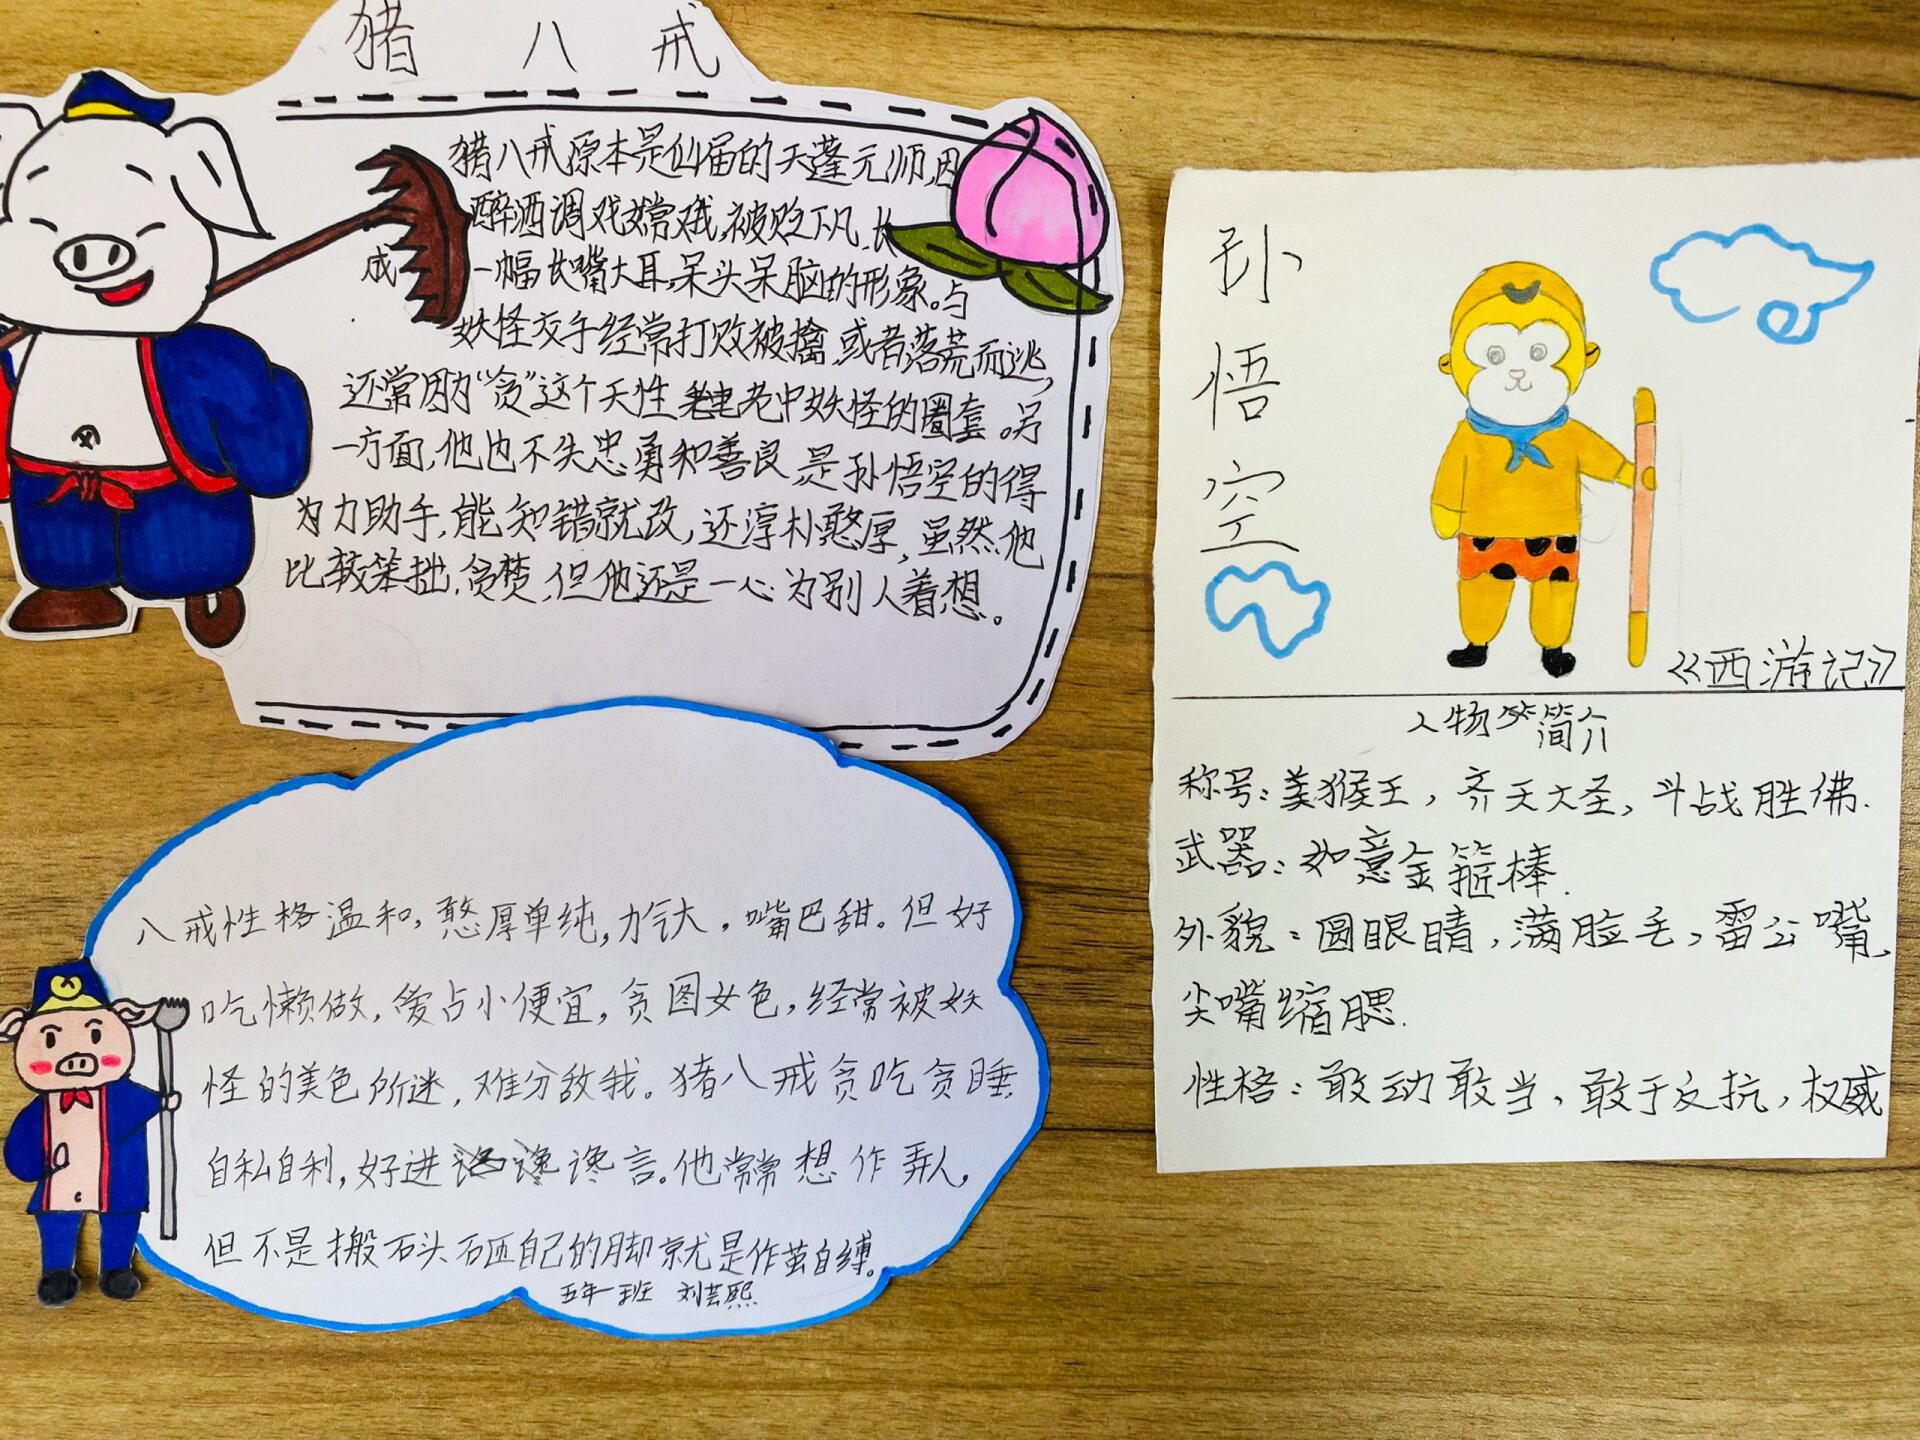 猪八戒
猪八戒原本是仙届的天蓬元帅,因
醉酒调戏嫦娥,被贬下凡,长
成一幅长嘴大耳,呆头呆脑的形象。与
妖怪交手经常打败被擒,或者落荒而逃,
还常因为“贪”这个天性 老中妖怪的圈套。另
一方面,他也不失忠勇和善良,是孙悟空的得
力助手,能知错就改,还淳朴憨厚,虽然他
比较笨拙,贪婪,但他还是一心为别人着想。
八戒性格温和,憨厚单纯,力气大,嘴巴甜。但好
吃懒做,爱占小便宜,贪图女色,经常被妖
怪的美色所迷,难分敌我。猪八戒贪吃贪睡,
自私自利,好进谗言。他常常想作弄人,
但不是搬石头砸自己的脚就是作茧自缚。
五年一班 刘芸熙
孙悟空
《西游记》
人物简介
称号:美猴王,齐天大圣,斗战胜佛.
武器:如意金箍棒.
外貌:圆眼睛,满脸毛,雷公嘴,
尖嘴缩腮.
性格:敢动敢当,敢于反抗,权威